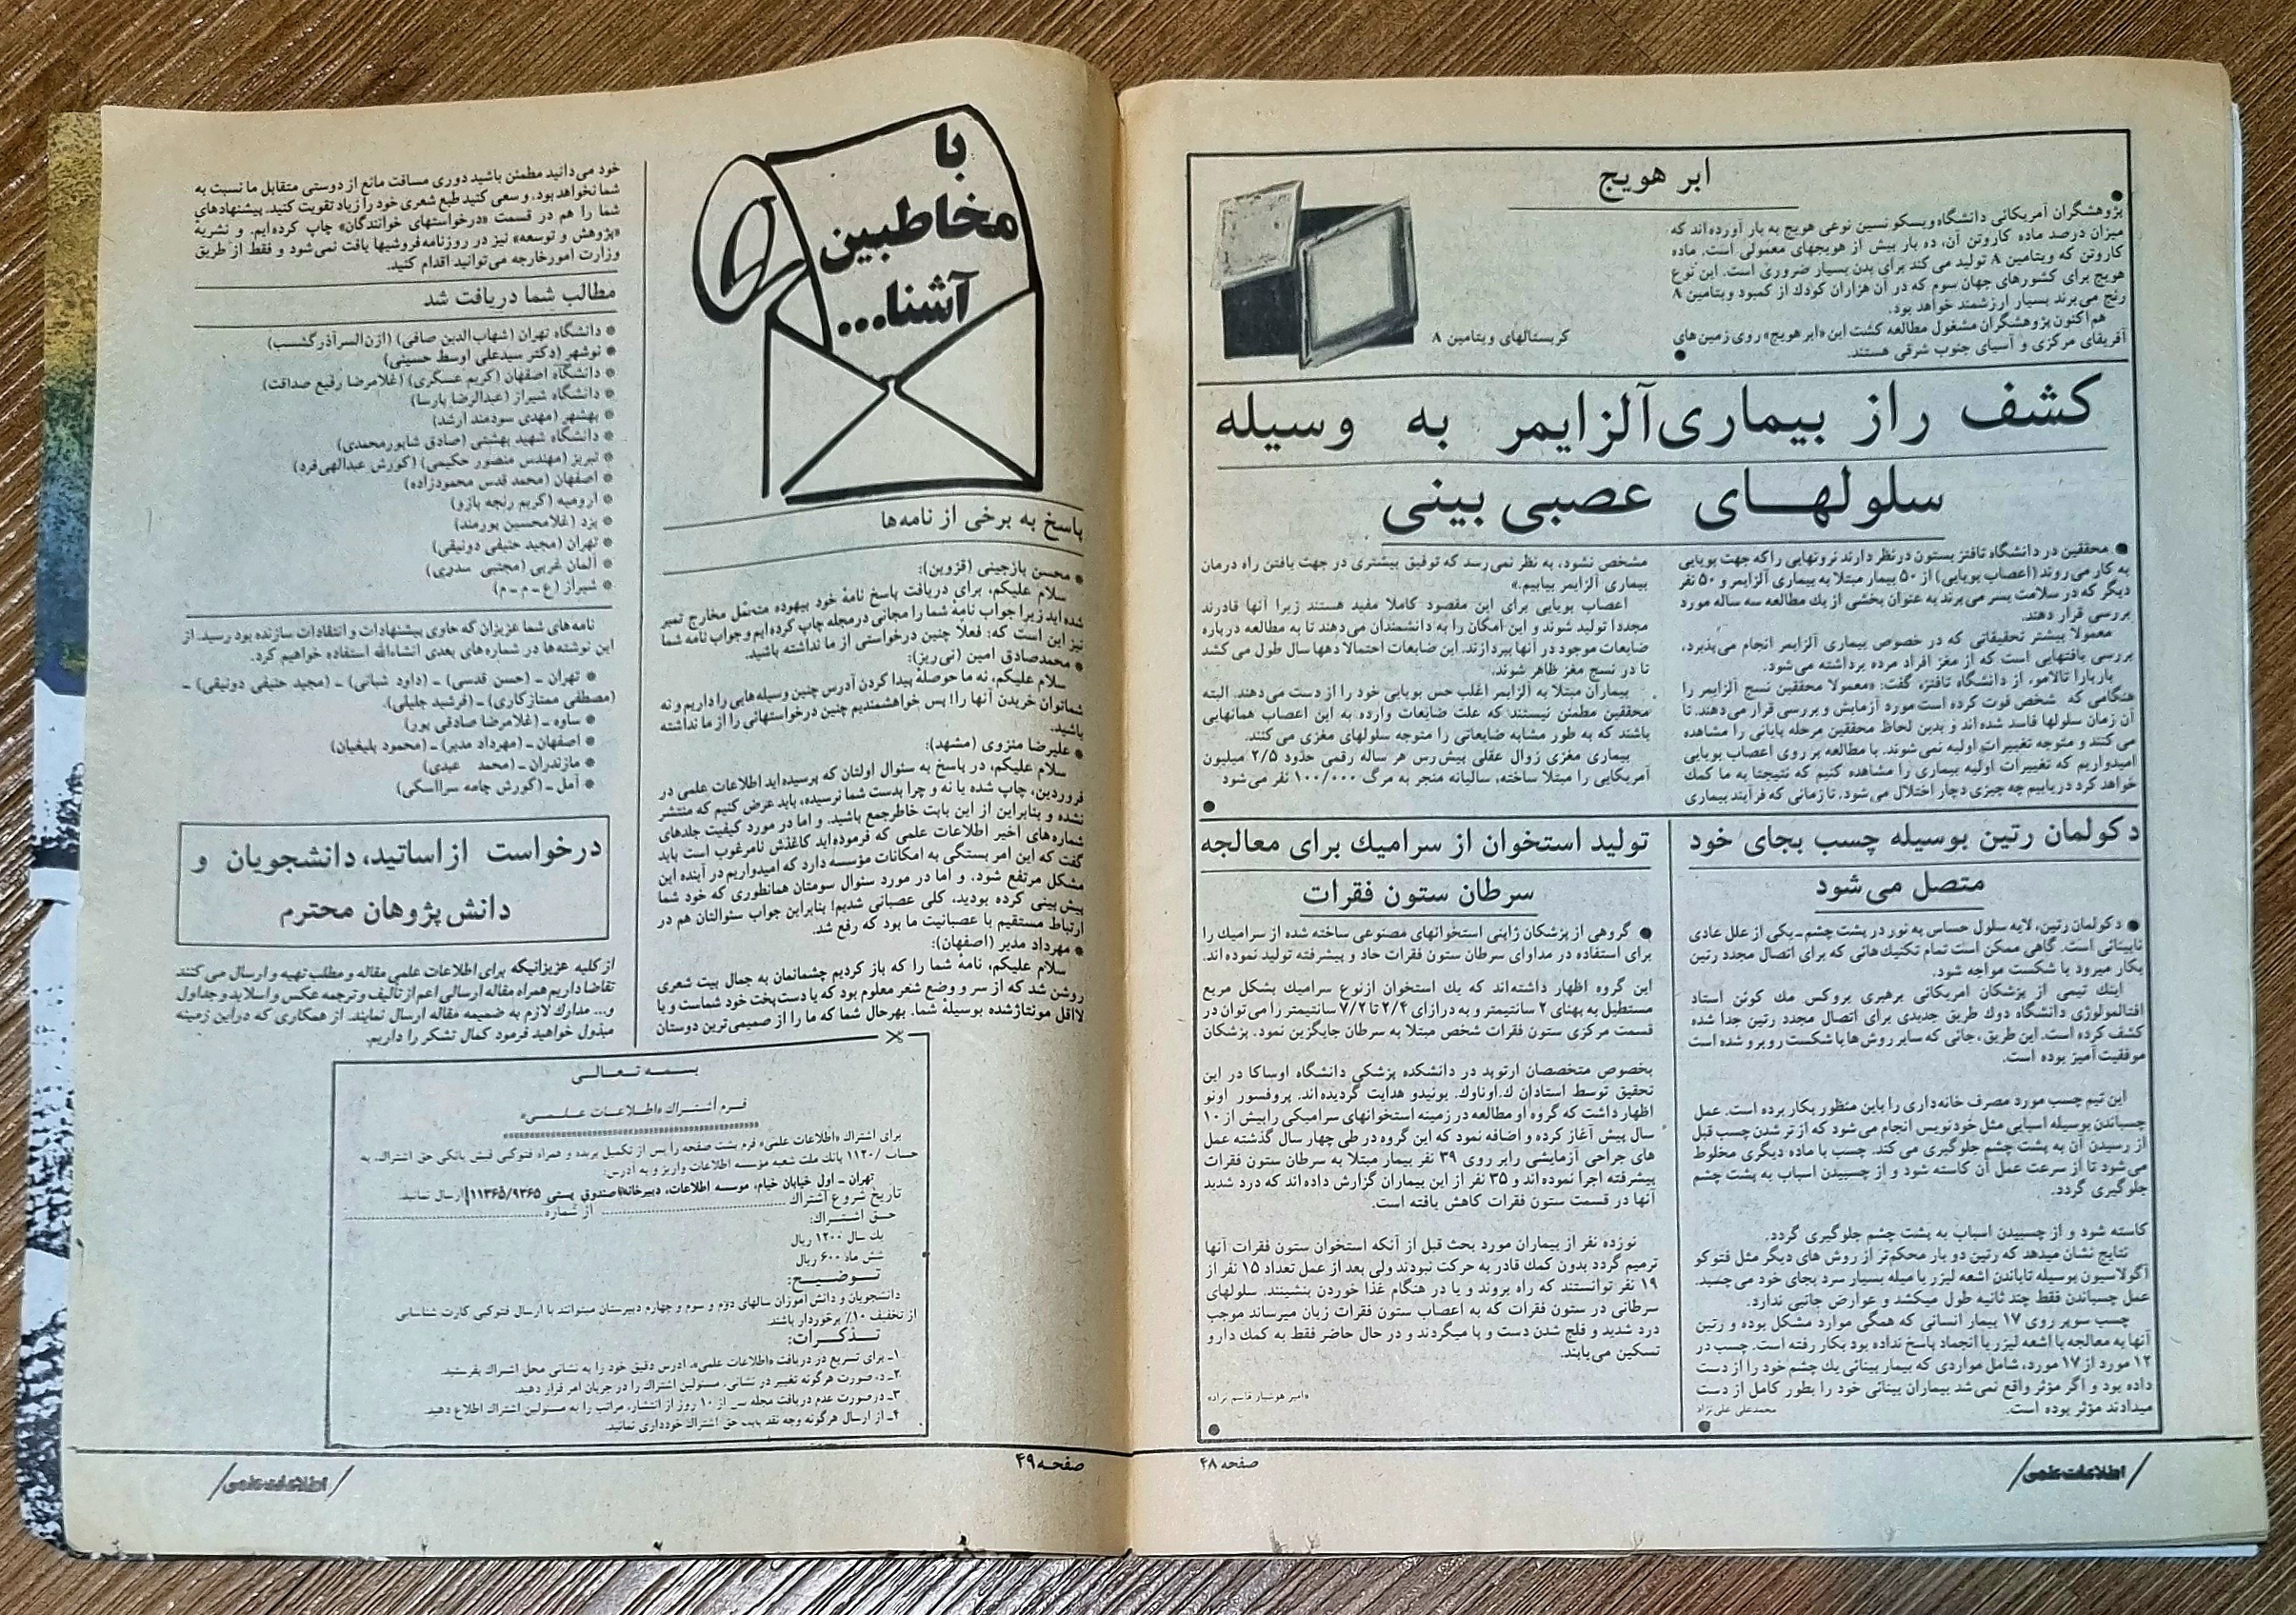 ابر هویج
●
پژوهشگران آمریکائی دانشگاه ویسکونسین نوعی هویج به بار آورده‌اند که
میزان درصد ماده کاروتن آن، ده بار بیش از هویجهای معمولی است. ماده
کاروتن که ویتامین A تولید می کند برای بدن بسیار ضروری است. این نوع
هویج برای کشورهای جهان سوم که در آن هزاران کودك از کمبود ویتامین A
رنج می‌برند بسیار ارزشمند خواهد بود.
هم‌اکنون پژوهشگران مشغول مطالعه کشت این «ابر هویج» روی زمین‌های
آفریقای مرکزی و آسیای جنوب شرقی هستند.
●
کریستالهای ویتامین A
کشف راز بیماری آلزایمر به وسیله
سلولهای عصبی بینی
● محققین در دانشگاه تافتز بستون درنظر دارند نرونهایی را که جهت بویایی
به کار می‌روند (اعصاب بویایی) از ۵۰ بیمار مبتلا به بیماری آلزایمر و ۵۰ نفر
دیگر که در سلامت بسر می‌برند به عنوان بخشی از یك مطالعه سه ساله مورد
بررسی قرار دهند.
معمولا بیشتر تحقیقاتی که در خصوص بیماری آلزایمر انجام می‌پذیرد،
بررسی بافتهایی است که از مغز افراد مرده برداشته می‌شود.
باربارا تالامو، از دانشگاه تافتز گفت: «معمولا محققین نسج آلزایمر را
هنگامی که شخص فوت کرده است مورد آزمایش و بررسی قرار می‌دهند. تا
آن زمان سلولها فاسد شده‌اند و بدین لحاظ محققین مرحله پایانی را مشاهده
می کنند و متوجه تغییرات اولیه نمی‌شوند. با مطالعه بر روی اعصاب بویایی
امیدواریم که تغییرات اولیه بیماری را مشاهده کنیم که نتیجتا به ما کمك
خواهد کرد دریابیم چه چیزی دچار اختلال می‌شود. تا زمانی که فرآیند بیماری
مشخص نشود، به نظر نمی‌رسد که توفیق بیشتری در جهت یافتن راه درمان
بیماری آلزایمر بیابیم.»
اعصاب بویایی برای این مقصود کاملا مفید هستند زیرا آنها قادرند
مجددا تولید شوند و این امکان را به دانشمندان می‌دهند تا به مطالعه درباره
ضایعات موجود در آنها بپردازند. این ضایعات احتمالا دهها سال طول می کشد
تا در نسج مغز ظاهر شوند.
بیماران مبتلا به آلزایمر اغلب حس بویایی خود را از دست می‌دهند. البته
محققین مطمئن نیستند که علت ضایعات وارده به این اعصاب همانهایی
باشند که به طور مشابه ضایعاتی را متوجه سلولهای مغزی می کنند.
بیماری مغزی زوال عقلی پیش‌رس هر ساله رقمی حدود ۲/۵ میلیون
آمریکایی را مبتلا ساخته، سالیانه منجر به مرگ ۱۰۰/۰۰۰ نفر می‌شود
●
دکولمان رتین بوسیله چسب بجای خود
متصل می‌شود
● دکولمان رتین، لایه سلول حساس به نور در پشت چشم ـ یکی از علل عادی
نابینائی است. گاهی ممکن است تمام تکنیك‌هائی که برای اتصال مجدد رتین
بکار میرود با شکست مواجه شود.
اینك تیمی از پزشکان امریکائی برهبری بروکس مك کوئن استاد
افتالمولوژی دانشگاه دوك طریق جدیدی برای اتصال مجدد رتین جدا شده
کشف کرده است. این طریق، جائی که سایر روش‌ها با شکست روبرو شده است
موفقیت آمیز بوده است.
این تیم چسب مورد مصرف خانه‌داری را باین منظور بکار برده است. عمل
چسباندن بوسیله اسبابی مثل خودنویس انجام می‌شود که از تر شدن چسب قبل
از رسیدن آن به پشت چشم جلوگیری می کند. چسب با ماده دیگری مخلوط
می‌شود تا از سرعت عمل آن کاسته شود و از چسبیدن اسباب به پشت چشم
جلوگیری گردد.
کاسته شود و از چسبیدن اسباب به پشت چشم جلوگیری گردد.
نتایج نشان میدهد که رتین دو بار محکم‌تر از روش های دیگر مثل فتوکو
آگولاسیون بوسیله تاباندن اشعه لیزر یا میله بسیار سرد بجای خود می‌چسبد.
عمل چسباندن فقط چند ثانیه طول میکشد و عوارض جانبی ندارد.
چسب سوپر روی ۱۷ بیمار انسانی که همگی موارد مشکل بوده و رتین
آنها به معالجه با اشعه لیزر یا انجماد پاسخ نداده بود بکار رفته است. چسب در
۱۲ مورد از ۱۷ مورد، شامل مواردی که بیمار بینائی یك چشم خود را از دست
داده بود و اگر مؤثر واقع نمی‌شد بیماران بینائی خود را بطور کامل از دست
میدادند مؤثر بوده است.
محمدعلی علی‌نژاد
●
تولید استخوان از سرامیك برای معالجه
سرطان ستون فقرات
● گروهی از پزشکان ژاپنی استخوانهای مصنوعی ساخته شده از سرامیك را
برای استفاده در مداوای سرطان ستون فقرات حاد و پیشرفته تولید نموده‌اند.
این گروه اظهار داشته‌اند که یك استخوان ازنوع سرامیك بشکل مربع
مستطیل به پهنای ۲ سانتیمتر و به درازای ۲/۴ تا ۷/۲ سانتیمتر را می‌توان در
قسمت مرکزی ستون فقرات شخص مبتلا به سرطان جایگزین نمود. پزشکان
بخصوص متخصصان ارتوپد در دانشکده پزشکی دانشگاه اوساکا در این
تحقیق توسط استادان ك.اوناوك. یونیدو هدایت گردیده‌اند. پروفسور اونو
اظهار داشت که گروه او مطالعه در زمینه استخوانهای سرامیکی را بیش از ۱۰
سال پیش آغاز کرده و اضافه نمود که این گروه در طی چهار سال گذشته عمل
های جراحی آزمایشی را بر روی ۳۹ نفر بیمار مبتلا به سرطان ستون فقرات
پیشرفته اجرا نموده‌اند و ۳۵ نفر از این بیماران گزارش داده‌اند که درد شدید
آنها در قسمت ستون فقرات کاهش یافته است.
نوزده نفر از بیماران مورد بحث قبل از آنکه استخوان ستون فقرات آنها
ترمیم گردد بدون کمك قادر به حرکت نبودند ولی بعد از عمل تعداد ۱۵ نفر از
۱۹ نفر توانستند که راه بروند و یا در هنگام غذا خوردن بنشینند. سلولهای
سرطانی در ستون فقرات که به اعصاب ستون فقرات زیان میرساند موجب
درد شدید و فلج شدن دست و پا میگردند و در حال حاضر فقط به کمك دارو
تسکین می‌یابند.
«امیر هوشیار قاسم نژاد»
●
/اطلاعات علمی/
صفحه ۴۸
با
مخاطبین
آشنا...
پاسخ به برخی از نامه‌ها
* محسن بازجینی (قزوین):
سلام علیکم، برای دریافت پاسخ نامهٔ خود بیهوده متحمّل مخارج تمبر
شده‌اید زیرا جواب نامهٔ شما را مجانی درمجله چاپ کرده‌ایم و جواب نامه شما
نیز این است که: فعلاً چنین درخواستی از ما نداشته باشید.
* محمدصادق امین (نی‌ریز):
سلام علیکم، نه ما حوصلهٔ پیدا کردن آدرس چنین وسیله‌هایی را داریم و نه
شما توان خریدن آنها را! پس خواهشمندیم چنین درخواستهائی را از ما نداشته
باشید.
* علیرضا منزوی (مشهد):
سلام علیکم، در پاسخ به سئوال اولتان که پرسیده‌اید اطلاعات علمی در
فروردین، چاپ شده یا نه و چرا بدست شما نرسیده، باید عرض کنیم که منتشر
نشده و بنابراین از این بابت خاطرجمع باشید. و اما در مورد کیفیت جلدهای
شماره‌های اخیر اطلاعات علمی که فرموده‌اید کاغذش نامرغوب است باید
گفت که این امر بستگی به امکانات مؤسسه دارد که امیدواریم در آینده این
مشکل مرتفع شود. و اما در مورد سئوال سومتان همانطوری که خود شما
پیش‌بینی کرده بودید، کلی عصبانی شدیم! بنابراین جواب سئوالتان هم در
ارتباط مستقیم با عصبانیت ما بود که رفع شد.
* مهرداد مدبر (اصفهان):
سلام علیکم، نامهٔ شما را که باز کردیم چشمانمان به جمال بیت شعری
روشن شد که از سر و وضع شعر معلوم بود که یا دست‌پخت خود شماست و یا
لااقل مونتاژشده بوسیلهٔ شما. بهرحال شما که ما را از صمیمی‌ترین دوستان
خود می‌دانید مطمئن باشید دوری مسافت مانع از دوستی متقابل ما نسبت به
شما نخواهد بود. و سعی کنید طبع شعری خود را زیاد تقویت کنید. پیشنهادهای
شما را هم در قسمت «درخواستهای خوانندگان» چاپ کرده‌ایم. و نشریهٔ
«پژوهش و توسعه» نیز در روزنامه‌فروشیها یافت نمی‌شود و فقط از طریق
وزارت امورخارجه می‌توانید اقدام کنید.
مطالب شما دریافت شد
* دانشگاه تهران (شهاب‌الدین صافی) (اژن‌السرآذرگشسب)
* نوشهر (دکتر سیدعلی اوسط حسینی)
* دانشگاه اصفهان (کریم عسگری) (غلامرضا رفیع صداقت)
* دانشگاه شیراز (عبدالرضا پارسا)
* بهشهر (مهدی سودمند ارشد)
* دانشگاه شهید بهشتی (صادق شاپورمحمدی)
* تبریز (مهندس منصور حکیمی) (کورش عبدالهی‌فرد)
* اصفهان (محمد قدس محمودزاده)
* ارومیه (کریم رنجه بازو)
* یزد (غلامحسین پورمند)
* تهران (مجید حنیفی دونیقی)
* آلمان غربی (مجتبی سدری)
* شیراز (ع ـ م ـ م)
نامه‌های شما عزیزان که حاوی پیشنهادات و انتقادات سازنده بود رسید. از
این نوشته‌ها در شماره‌های بعدی انشاءالله استفاده خواهیم کرد.
* تهران ـ (حسن قدسی) ـ (داود شبانی) ـ (مجید حنیفی دونیقی) ـ
(مصطفی ممتازکاری) ـ (فرشید جلیلی).
* ساوه ـ (غلامرضا صادقی پور)
* اصفهان ـ (مهرداد مدبر) ـ (محمود بلیغیان)
* مازندران ـ (محمد عبدی)
* آمل ـ (کورش چامه سراآسکی)
درخواست از اساتید، دانشجویان و
دانش‌پژوهان محترم
از کلیه عزیزانیکه برای اطلاعات علمی مقاله و مطلب تهیه و ارسال می کنند
تقاضا داریم همراه مقاله ارسالی اعم از تألیف و ترجمه عکس و اسلاید و جداول
و... مدارك لازم به ضمیمه مقاله ارسال نمایند. از همکاری که دراین زمینه
مبذول خواهید فرمود کمال تشکر را داریم.
بسمه تعالی
فرم اشتراك «اطلاعات علمی»
برای اشتراك «اطلاعات علمی» فرم پشت صفحه را پس از تکمیل بریده و همراه فتوکپی فیش بانکی حق اشتراك، به
حساب ۱۱۲۰/ بانك ملت شعبه مؤسسه اطلاعات واریز و به آدرس:
تهران ـ اول خیابان خیام، موسسه اطلاعات، دبیرخانه/صندوق پستی ۱۱۳۶۵/۹۳۶۵ ارسال نمائید.
تاریخ شروع اشتراك .................... از شماره ....................
حق اشتراك:
یك سال ۱۲۰۰ ریال
شش ماه ۶۰۰ ریال
توضیح:
دانشجویان و دانش آموزان سالهای دوم و سوم و چهارم دبیرستان میتوانند با ارسال فتوکپی کارت شناسایی
از تخفیف ۱۰٪ برخوردار باشند.
تذکرات:
۱ـ برای تسریع در دریافت «اطلاعات علمی»، آدرس دقیق خود را به نشانی محل اشتراك بفرستید.
۲ـ درصورت هرگونه تغییر در نشانی، مسئولین اشتراك را در جریان امر قرار دهید.
۳ـ درصورت عدم دریافت مجله از ۱۰ روز از انتشار، مراتب را به مسئولین اشتراك اطلاع دهید.
۴ـ از ارسال هرگونه وجه نقد بابت حق اشتراك خودداری نمائید.
صفحه ۴۹
/اطلاعات علمی/